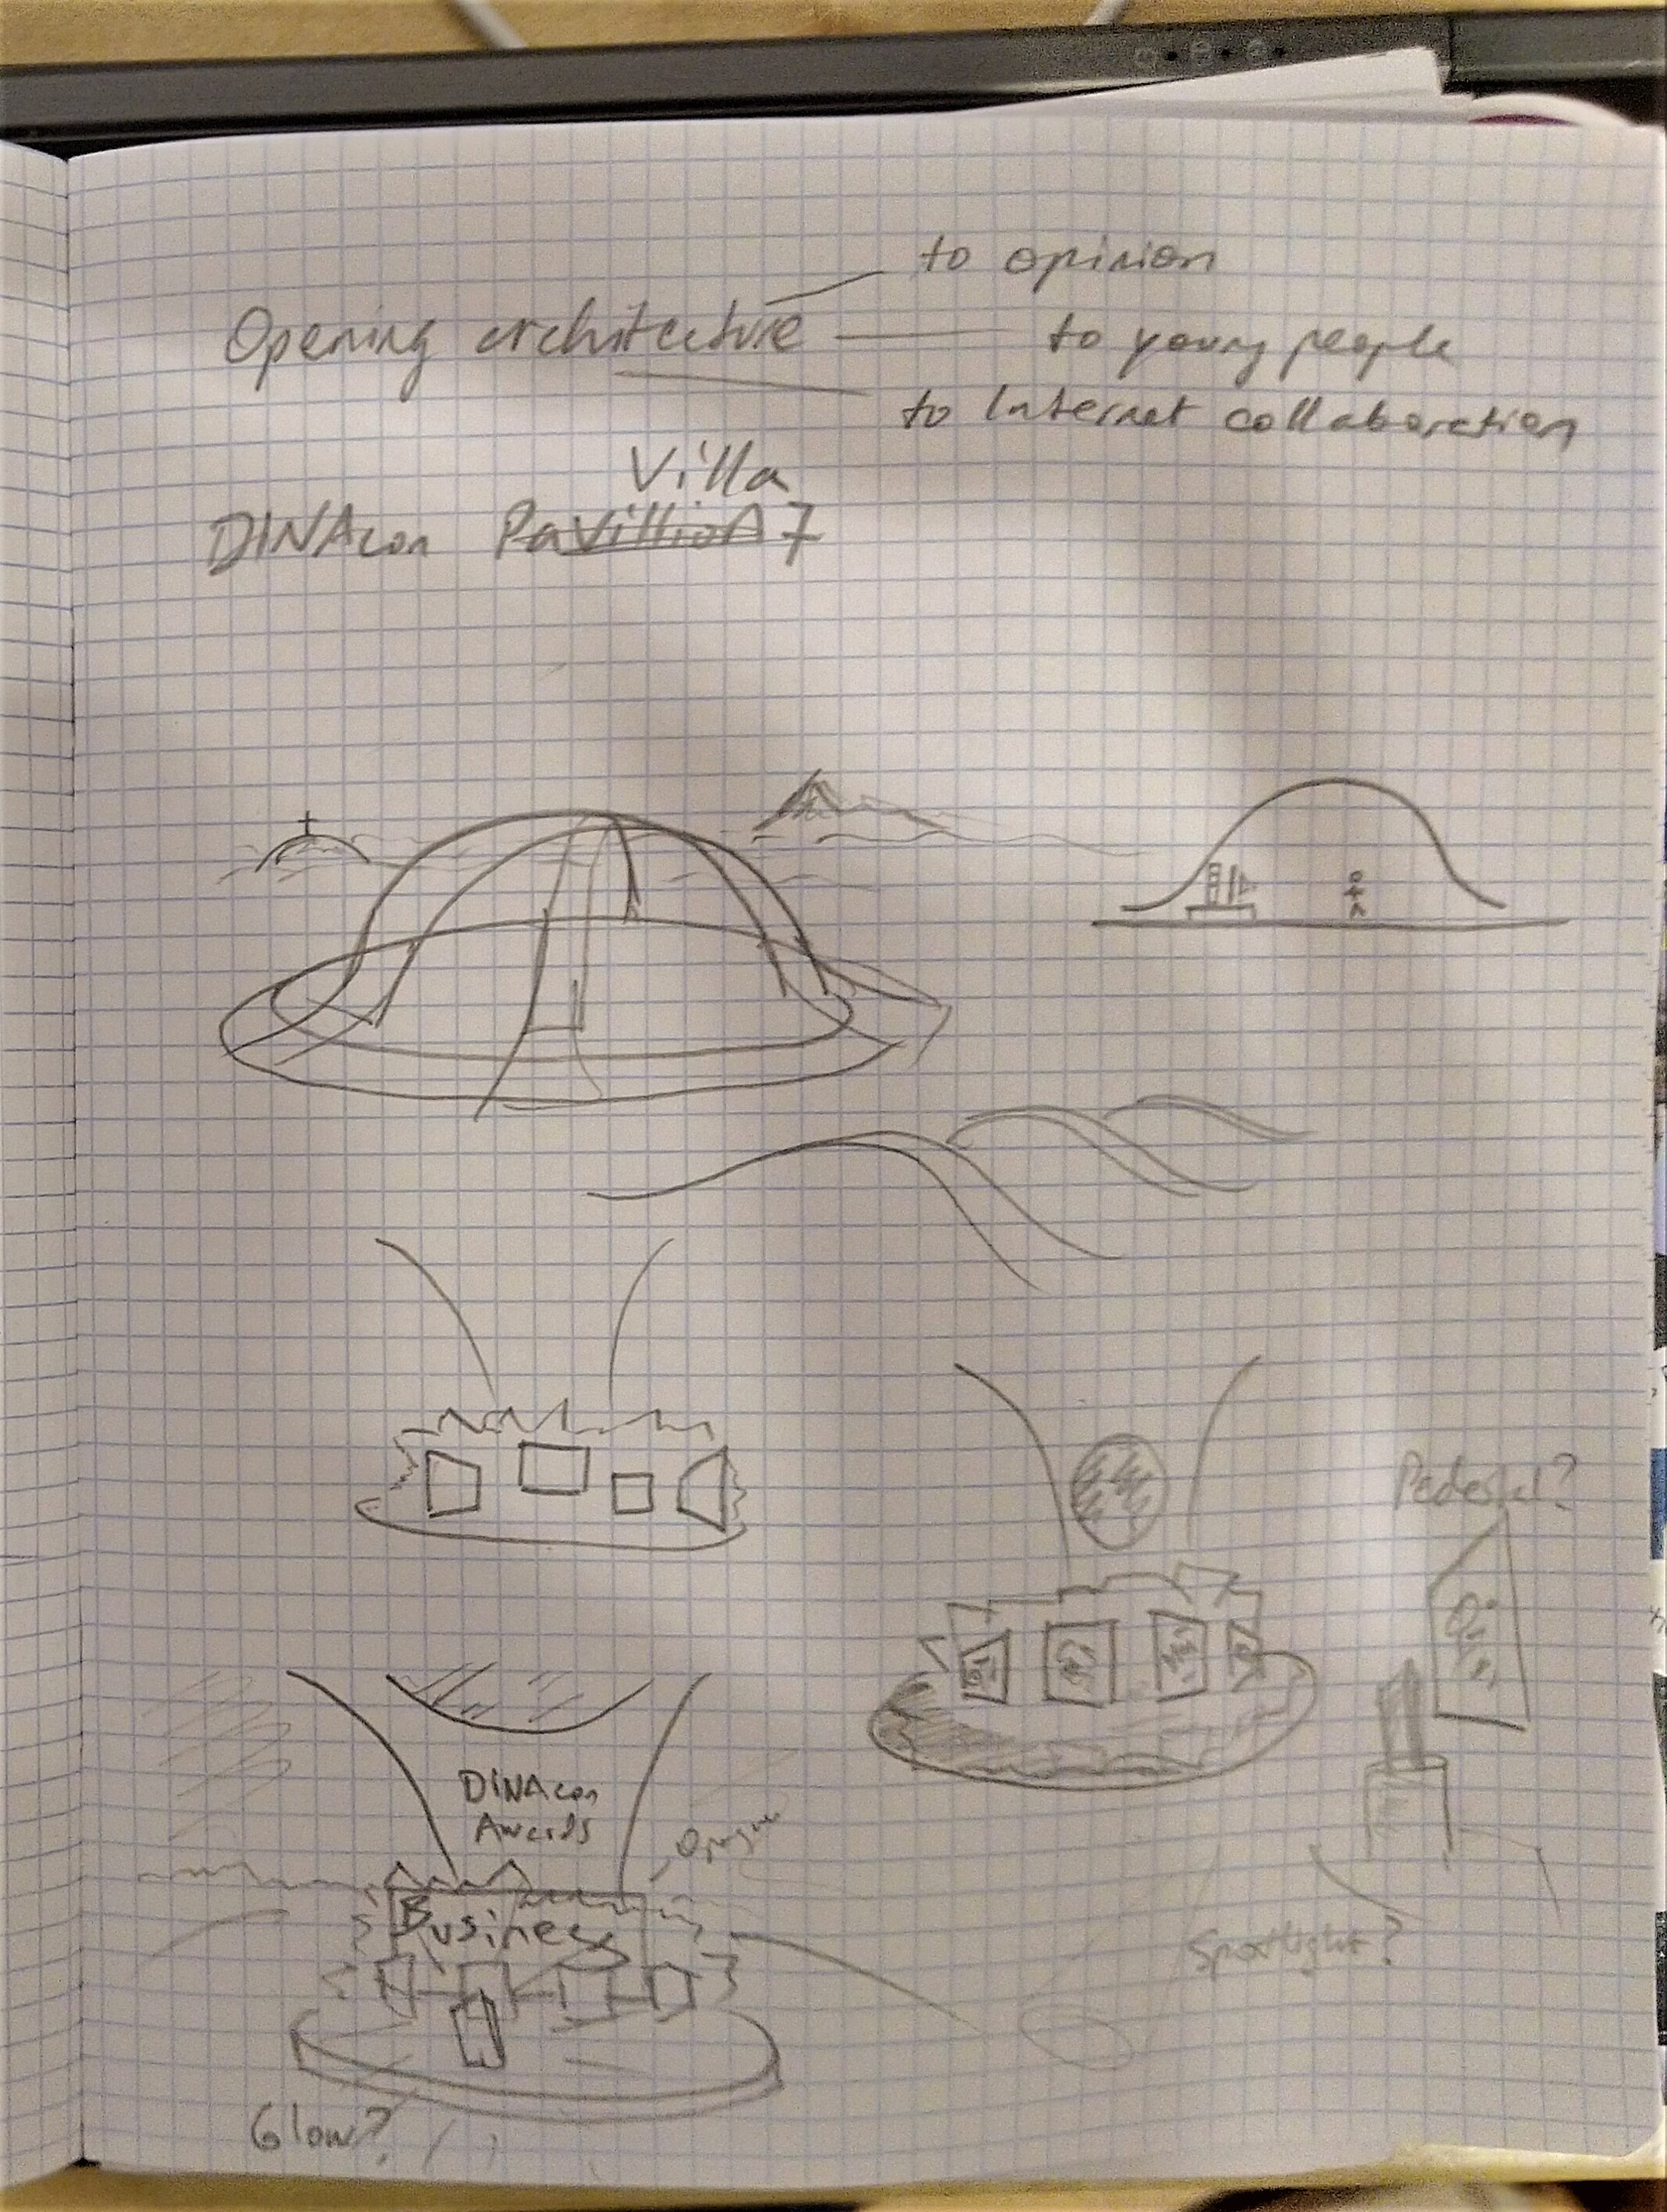 to opinion
Opening architecture
to young people
to Internet collaboration
Villa
DINAcon Pavillion 7
Pedestal?
DINAcon
Awards
Opaque
Business
Spotlight?
Glow?